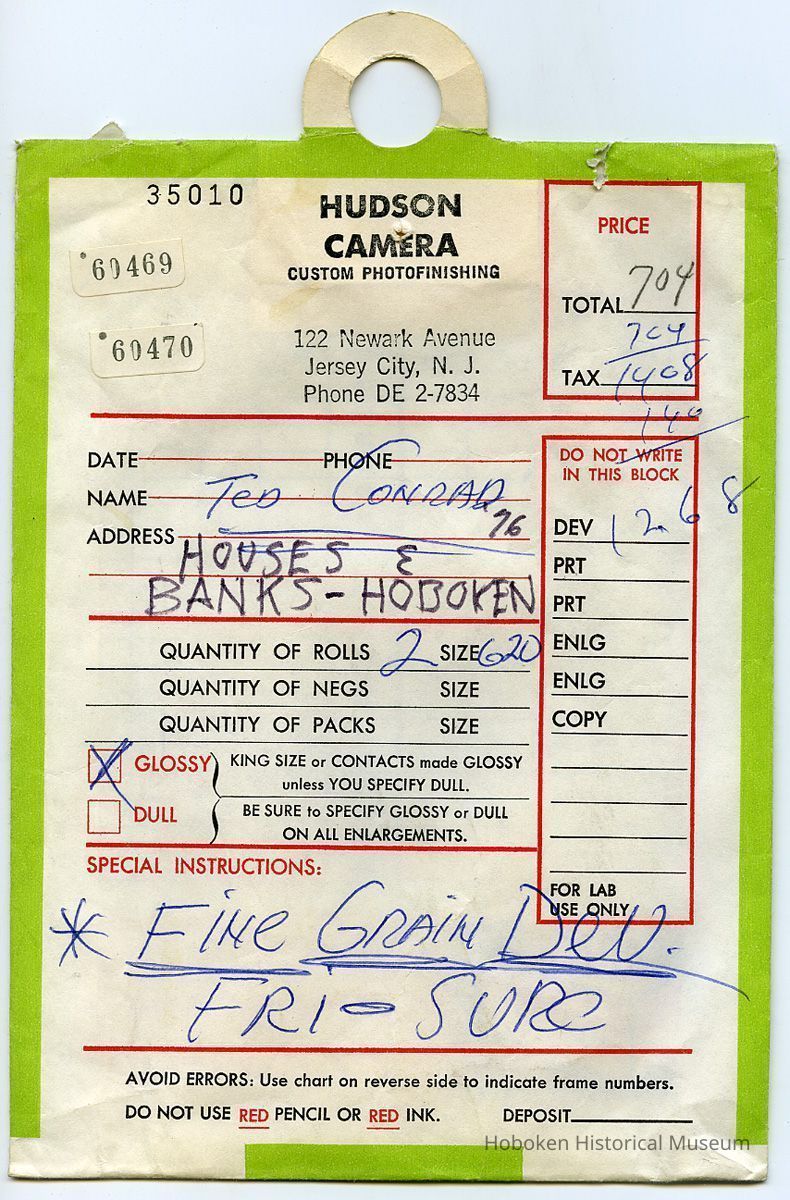 35010
60469
60470
HUDSON
CAMERA
CUSTOM PHOTOFINISHING
122 Newark Avenue
Jersey City, N. J.
Phone DE 2-7834
PRICE
TOTAL 704
704
TAX 1408
140
1268
DATE PHONE
NAME TED CONRAD
76
ADDRESS
HOUSES &
BANKS - HOBOKEN
QUANTITY OF ROLLS 2 SIZE 620
QUANTITY OF NEGS SIZE
QUANTITY OF PACKS SIZE
X GLOSSY
DULL
KING SIZE or CONTACTS made GLOSSY
unless YOU SPECIFY DULL.
BE SURE to SPECIFY GLOSSY or DULL
ON ALL ENLARGEMENTS.
DO NOT WRITE
IN THIS BLOCK
DEV
PRT
PRT
ENLG
ENLG
COPY
FOR LAB
USE ONLY
SPECIAL INSTRUCTIONS:
* FINE GRAIN DEV.
FRI - SURE
AVOID ERRORS: Use chart on reverse side to indicate frame numbers.
DO NOT USE RED PENCIL OR RED INK. DEPOSIT
Hoboken Historical Museum